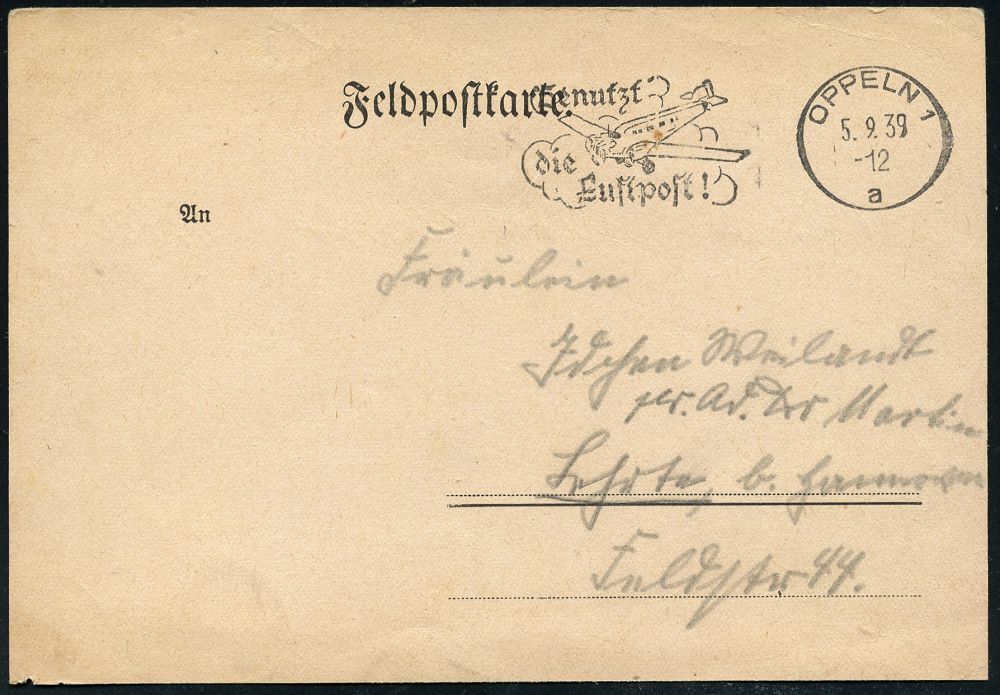 Feldpostkarte.
Benutzt
die
Luftpost!
OPPELN 1
5.9.39
-12
a
An
Fräulein
Idchen Weilandt
per. Ad. Martin
Lehrte, b. Hannover
Feldstr 44.